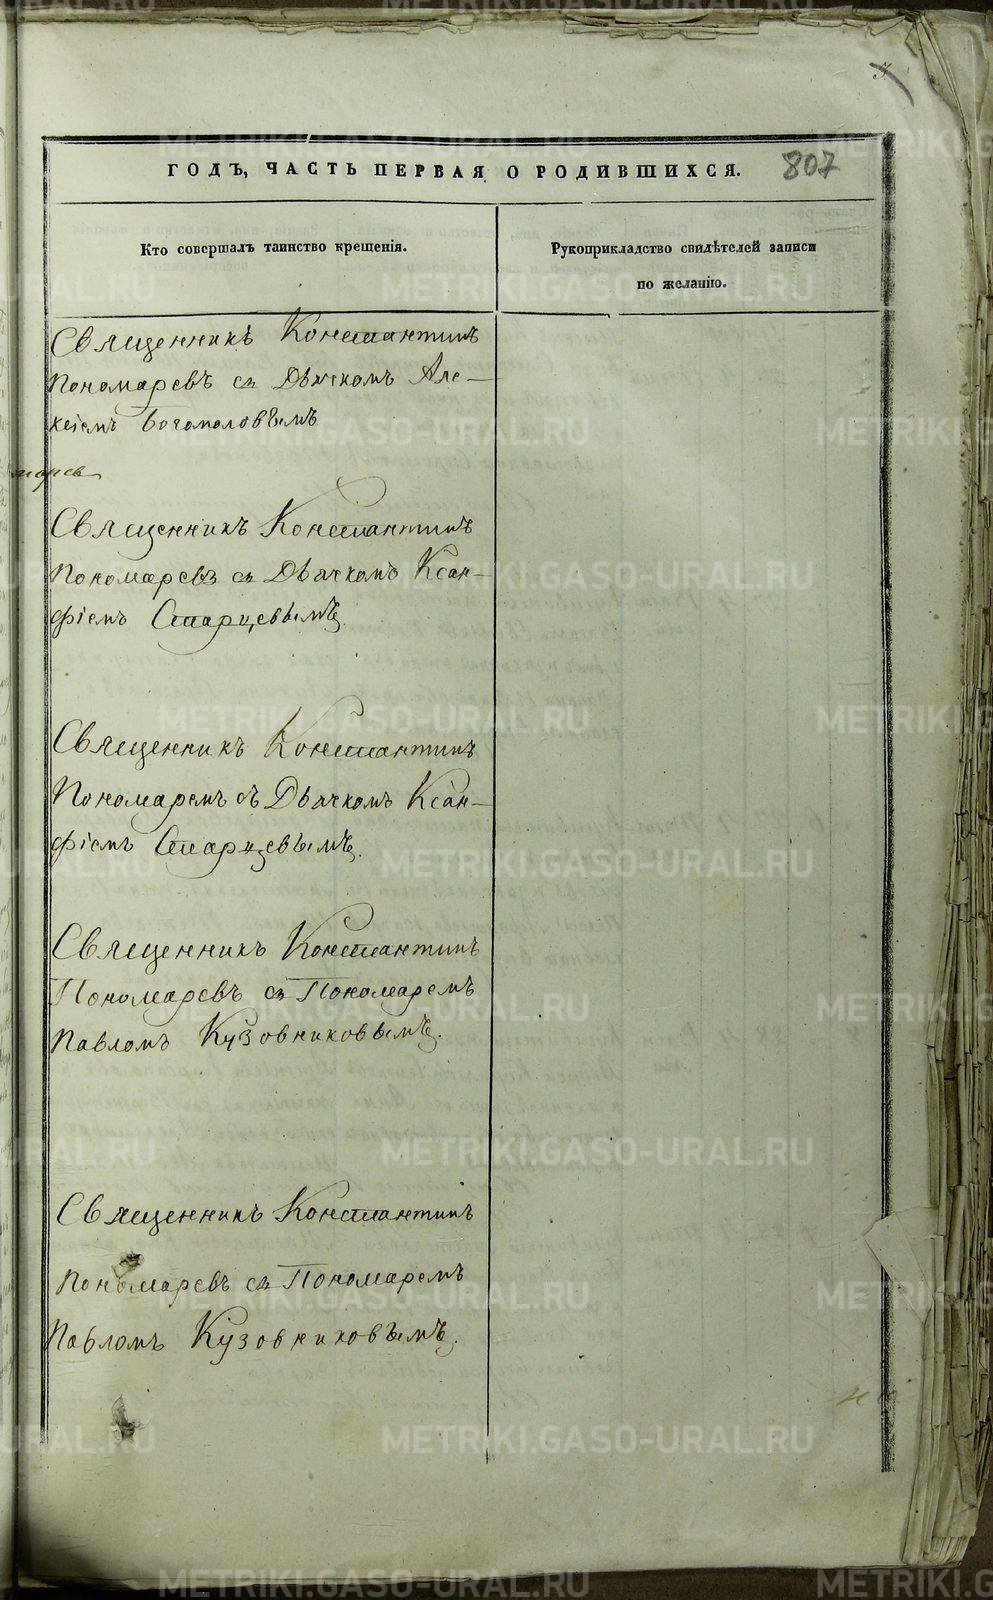 3
ГОДЪ, ЧАСТЬ ПЕРВАЯ О РОДИВШИХСЯ. 807
Кто совершалъ таинство крещенія.
Рукоприкладство свидѣтелей записи
по желанію.
Священникъ Константинъ
Пономаревъ съ Дьячкомъ Але-
ксѣемъ Богомоловымъ
Священникъ Константинъ
Пономаревъ съ Дьячкомъ Ксан-
фіемъ Старцевымъ.
Священникъ Константинъ
Пономаремъ съ Дьячкомъ Ксан-
фіемъ Старцевымъ.
Священникъ Константинъ
Пономаревъ съ Пономаремъ
Павломъ Кузовниковымъ.
Священникъ Константинъ
Пономаревъ съ Пономаремъ
Павломъ Кузовниковымъ.
METRIKI.GASO-URAL.RU